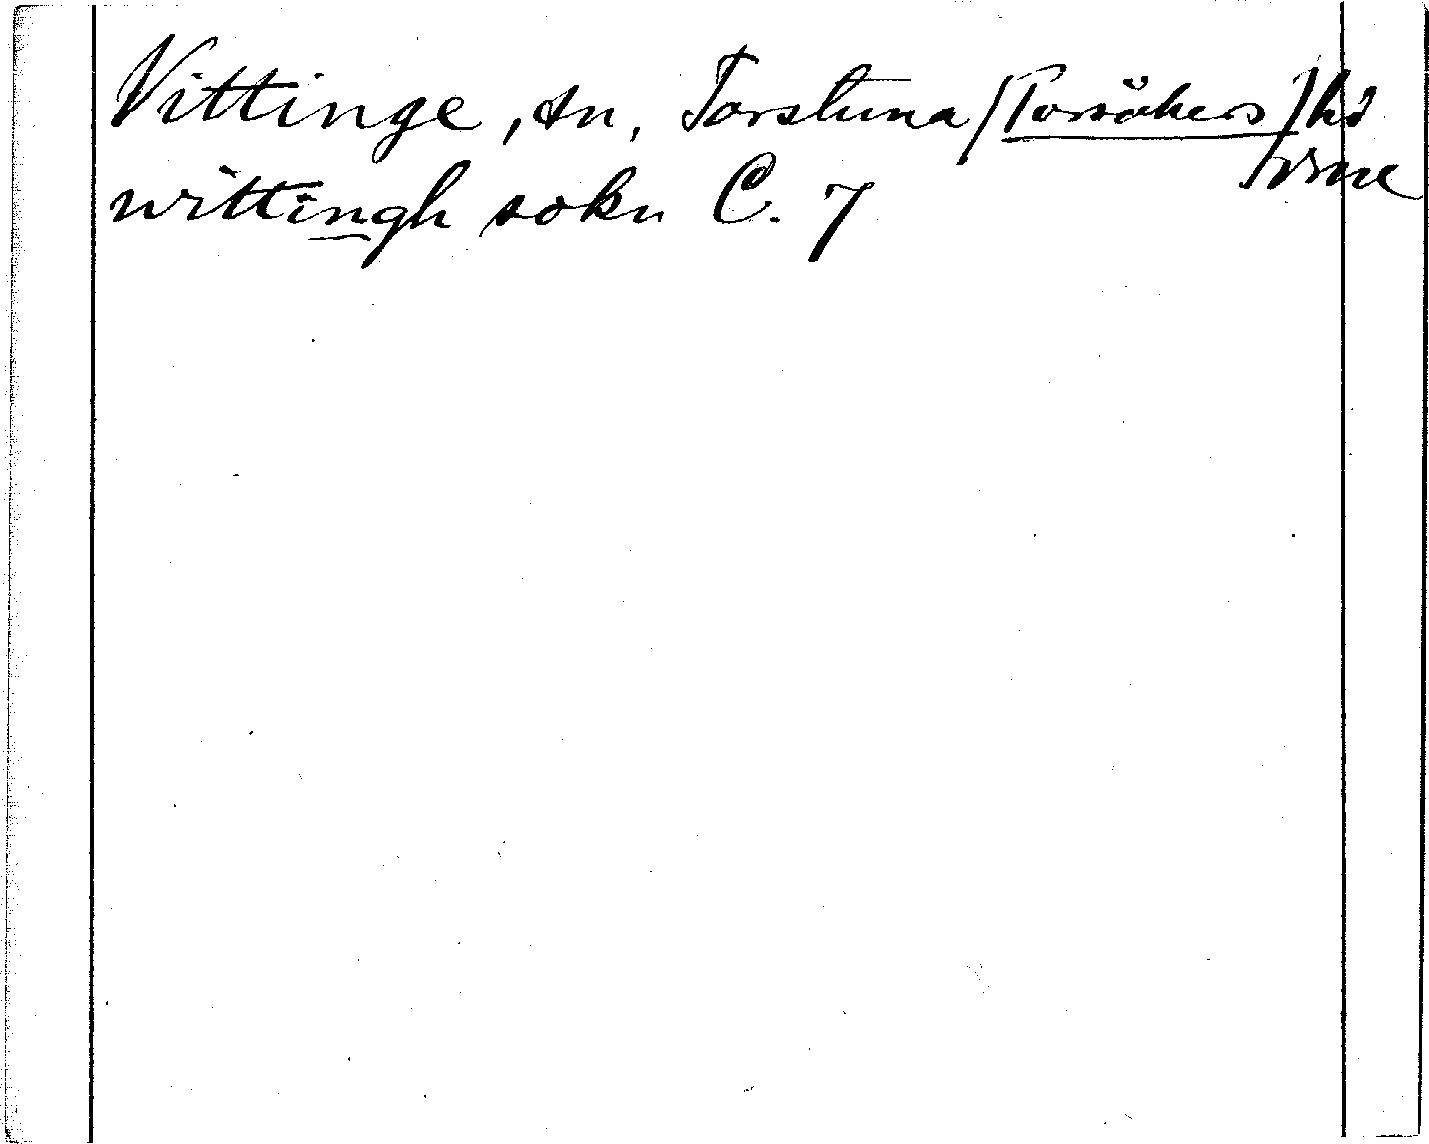 Vittinge, sn, Torstuna (Torsåkers) hd
wittingh sokn C. 7